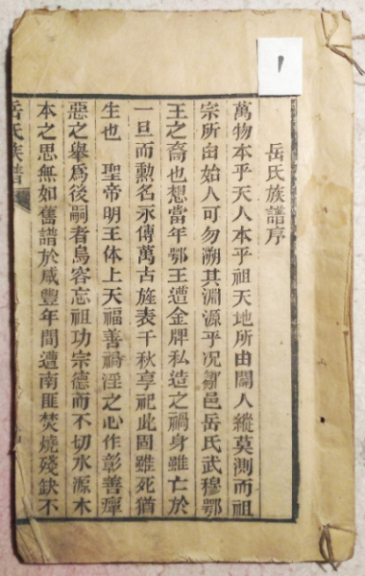 岳氏族譜序
萬物本乎天人本乎祖天地所由闢人縱莫測而祖
宗所由始人可勿溯其淵源乎况鄒邑岳氏武穆鄂
王之裔也想當年鄂王遭金牌私造之禍身雖亡於
一旦而勲名永傳萬古旌表千秋享祀此固雖死猶
生也 聖帝明王体上天福善禍淫之心作彰善癉
惡之舉爲後嗣者烏容忘祖功宗德而不切水源木
本之思無如舊譜於咸豐年間遭南匪焚燒殘缺不
岳氏族譜